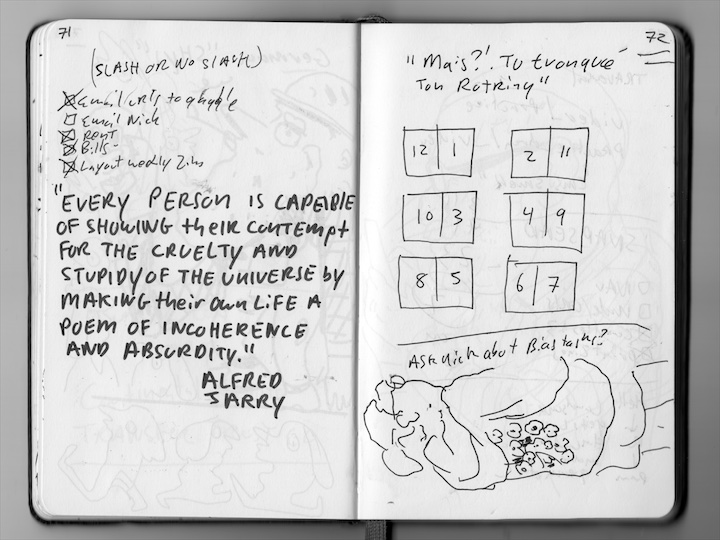 71
(SLASH OR NO SLASH)
Email
Email Nick
RENT
Bills -
Layout weekly Zine
"EVERY PERSON IS CAPEIBLE
OF SHOWING their CONTEMPT
FOR THE CRUELTY AND
STUPIDY OF THE UNIVERSE by
MAKING their own LIFE A
POEM OF INCOHERENCE
AND ABSURDITY."
ALFRED
JARRY
72
"Mais?! Tu tronque
Ton Rotring"
12 1 2 11
10 3 4 9
8 5 6 7
Ask Nick about